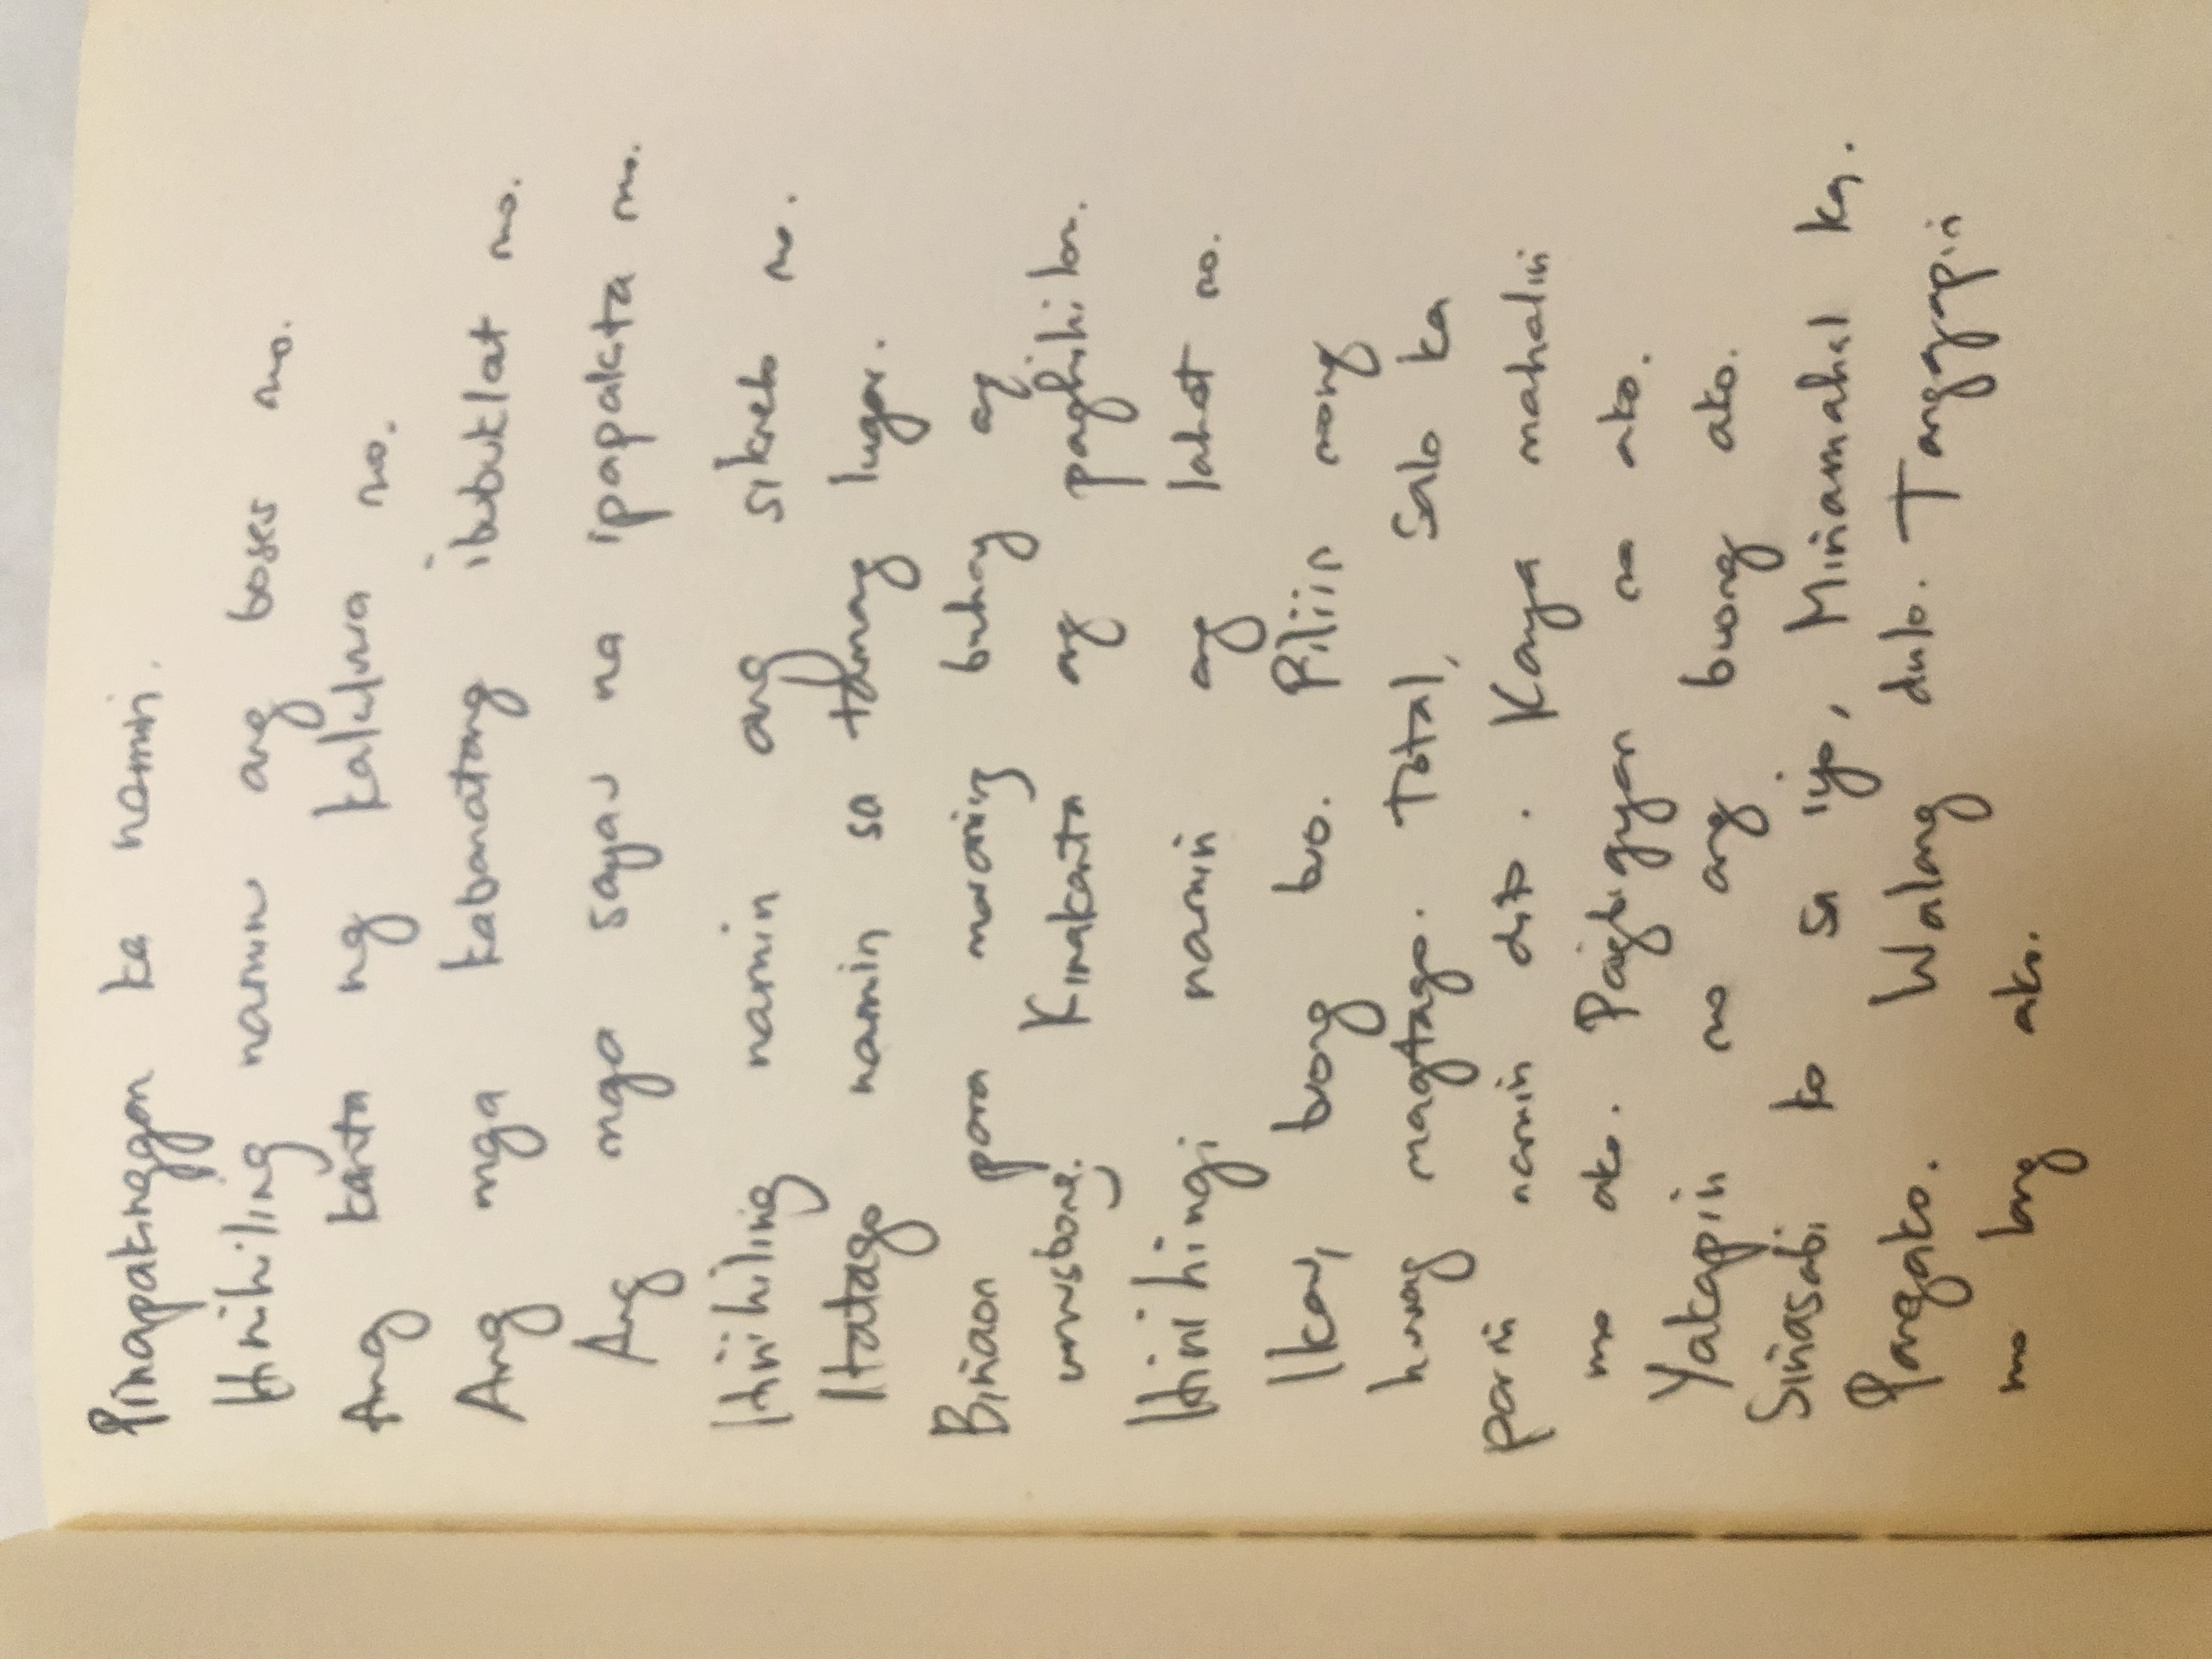 Pinapakinggan ka namin.
Hinihiling namin ang boses mo.
Ang kanta ng kaluluwa mo.
Ang mga kabanatang ibubuklat mo.
Ang mga sayaw na ipapakita mo.
Hinihiling namin ang sikreto mo.
Itatago namin sa tamang lugar.
Binaon para maging buhay ay
umusbong. Kinakanta ang paghihilom.
Hinihingi namin ang lahat mo.
Ikaw, buong buo. Piliin mong
huwag magtago. Total, salo ka
parin namin dito. Kaya mahalin
mo ako. Pagbigyan mo ako.
Yakapin mo ang buong ako.
Sinasabi ko sa iyo, Minamahal ka.
Pangako. Walang dulo. Tanggapin
mo lang ako.